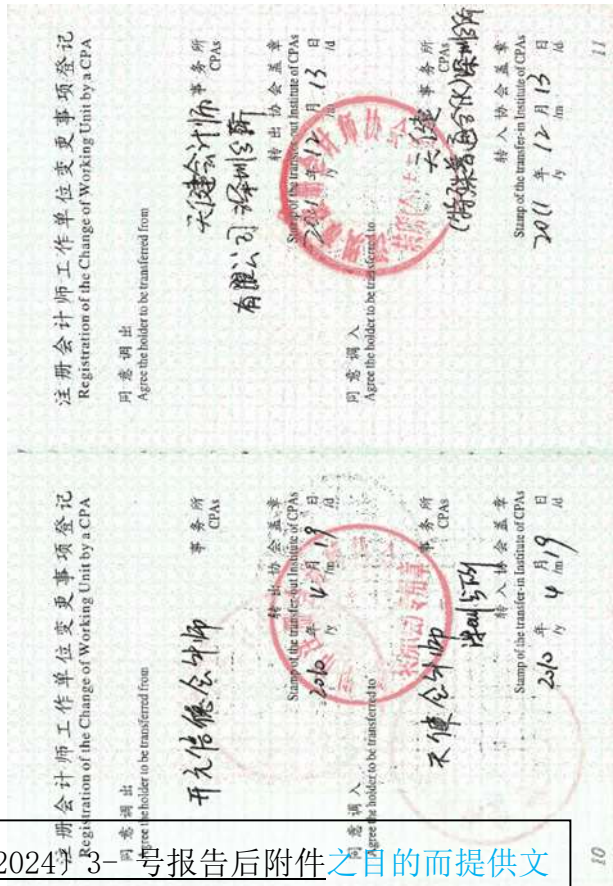 注册会计师工作单位变更事项登记
Registration of the Change of Working Unit by a CPA
同意调出
Agree the holder to be transferred from
开元信德会计师 事务所
CPAs
转出协会盖章
Stamp of the transfer-out Institute of CPAs
2010 年 4 月 19 日
/y /m /d
同意调入
Agree the holder to be transferred to
天健会计师 事务所
CPAs
深圳分所
转入协会盖章
Stamp of the transfer-in Institute of CPAs
2010 年 4 月 19 日
/y /m /d
10
注册会计师工作单位变更事项登记
Registration of the Change of Working Unit by a CPA
同意调出
Agree the holder to be transferred from
天健会计师 事务所
CPAs
有限公司深圳分所
转出协会盖章
Stamp of the transfer-out Institute of CPAs
2011 年 12 月 13 日
/y /m /d
同意调入
Agree the holder to be transferred to
天健 事务所
CPAs
(特殊普通合伙)深圳分所
转入协会盖章
Stamp of the transfer-in Institute of CPAs
2011 年 12 月 13 日
/y /m /d
11
2024〕3- 号报告后附件之目的而提供文